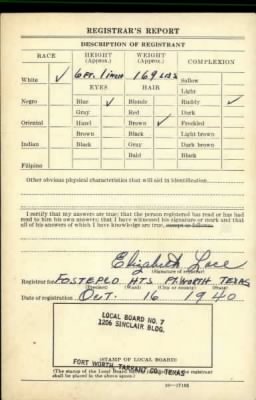 REGISTRAR'S REPORT
DESCRIPTION OF REGISTRANT
RACE HEIGHT (Approx.) WEIGHT (Approx.) COMPLEXION
White ✓ 6 FT. 1 inch 169 LBS Sallow
EYES HAIR Light
Negro Blue ✓ Blonde Ruddy ✓
Gray Red Dark
Oriental Hazel Brown ✓ Freckled
Brown Black Light brown
Indian Black Gray Dark brown
Bald Black
Filipino
Other obvious physical characteristics that will aid in identification
I certify that my answers are true; that the person registered has read or has had
read to him his own answers; that I have witnessed his signature or mark and that
all of his answers of which I have knowledge are true, except as follows:
Elizabeth
(Signature of registrar)
Registrar for HTS. FT. WORTH TEXAS
(Precinct) (Ward) (City or county) (State)
Date of registration Oct. 16 1940
LOCAL BOARD NO. 7
1206 SINCLAIR BLDG.
FORT WORTH, TARRANT CO., TEXAS
(STAMP OF LOCAL BOARD)
(The stamp of the Local Board having jurisdiction of the registrant
shall be placed in the above space.)